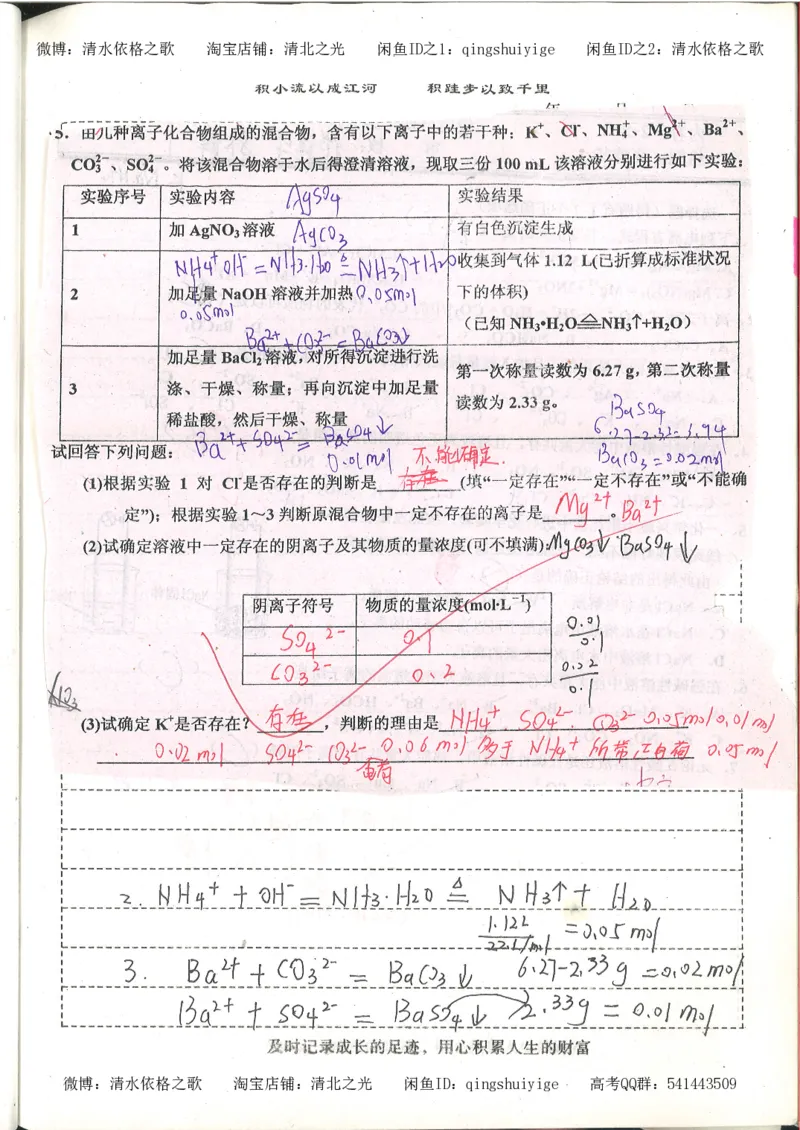 微博：清水依格之歌 淘宝店铺：清北之光 闲鱼ID之1：qingshuiyige 闲鱼ID之2：清水依格之歌
积小流以成江河 积跬步以致千里
5. 由几种离子化合物组成的混合物，含有以下离子中的若干种：K⁺、Cl⁻、NH₄⁺、Mg²⁺、Ba²⁺、
CO₃²⁻、SO₄²⁻。将该混合物溶于水后得澄清溶液，现取三份 100 mL 该溶液分别进行如下实验：
实验序号 实验内容 AgSO4 实验结果
1 加 AgNO₃ 溶液 AgCO3 有白色沉淀生成
NH4⁺ OH⁻ = NH3·H2O ≜ NH3↑+H2O
2 加足量 NaOH 溶液并加热 0.05mol
0.05mol
收集到气体 1.12 L(已折算成标准状况
下的体积)
（已知 NH₃•H₂O≜NH₃↑+H₂O）
Ba²⁺+CO3²⁻=BaCO3↓
3 加足量 BaCl₂ 溶液，对所得沉淀进行洗
涤、干燥、称量；再向沉淀中加足量
稀盐酸，然后干燥、称量
第一次称量读数为 6.27 g，第二次称量
读数为 2.33 g。
BaSO4
6.27-2.33=3.94
Ba²⁺+SO4²⁻=BaSO4↓
0.01mol
BaCO3=0.02mol
试回答下列问题：
不能确定
(1)根据实验 1 对 Cl⁻是否存在的判断是 存在 (填“一定存在”“一定不存在”或“不能确
定”)；根据实验 1~3 判断原混合物中一定不存在的离子是 Mg²⁺ 。Ba²⁺
(2)试确定溶液中一定存在的阴离子及其物质的量浓度(可不填满)：MgCO3↓ BaSO4↓
阴离子符号 物质的量浓度(mol·L⁻¹)
SO4²⁻ 0.1 0.01
0.1
CO3²⁻ 0.2 0.02
0.1
(3)试确定 K⁺是否存在？ 存在 ，判断的理由是 NH4⁺、SO4²⁻ CO3²⁻ 0.05mol 0.01mol
0.02mol SO4²⁻ CO3²⁻ 0.06mol 多于 NH4⁺ 所带正电荷 0.05mol
电荷
2. NH4⁺ + OH⁻ = NH3·H2O ≜ NH3↑ + H2O
1.12L
22.L/mol =0.05mol
3. Ba²⁺ + CO3²⁻ = BaCO3↓ 6.27-2.33g =0.02mol
Ba²⁺ + SO4²⁻ = BaSO4↓ 2.33g = 0.01mol
及时记录成长的足迹，用心积累人生的财富
微博：清水依格之歌 淘宝店铺：清北之光 闲鱼ID：qingshuiyige 高考QQ群：541443509